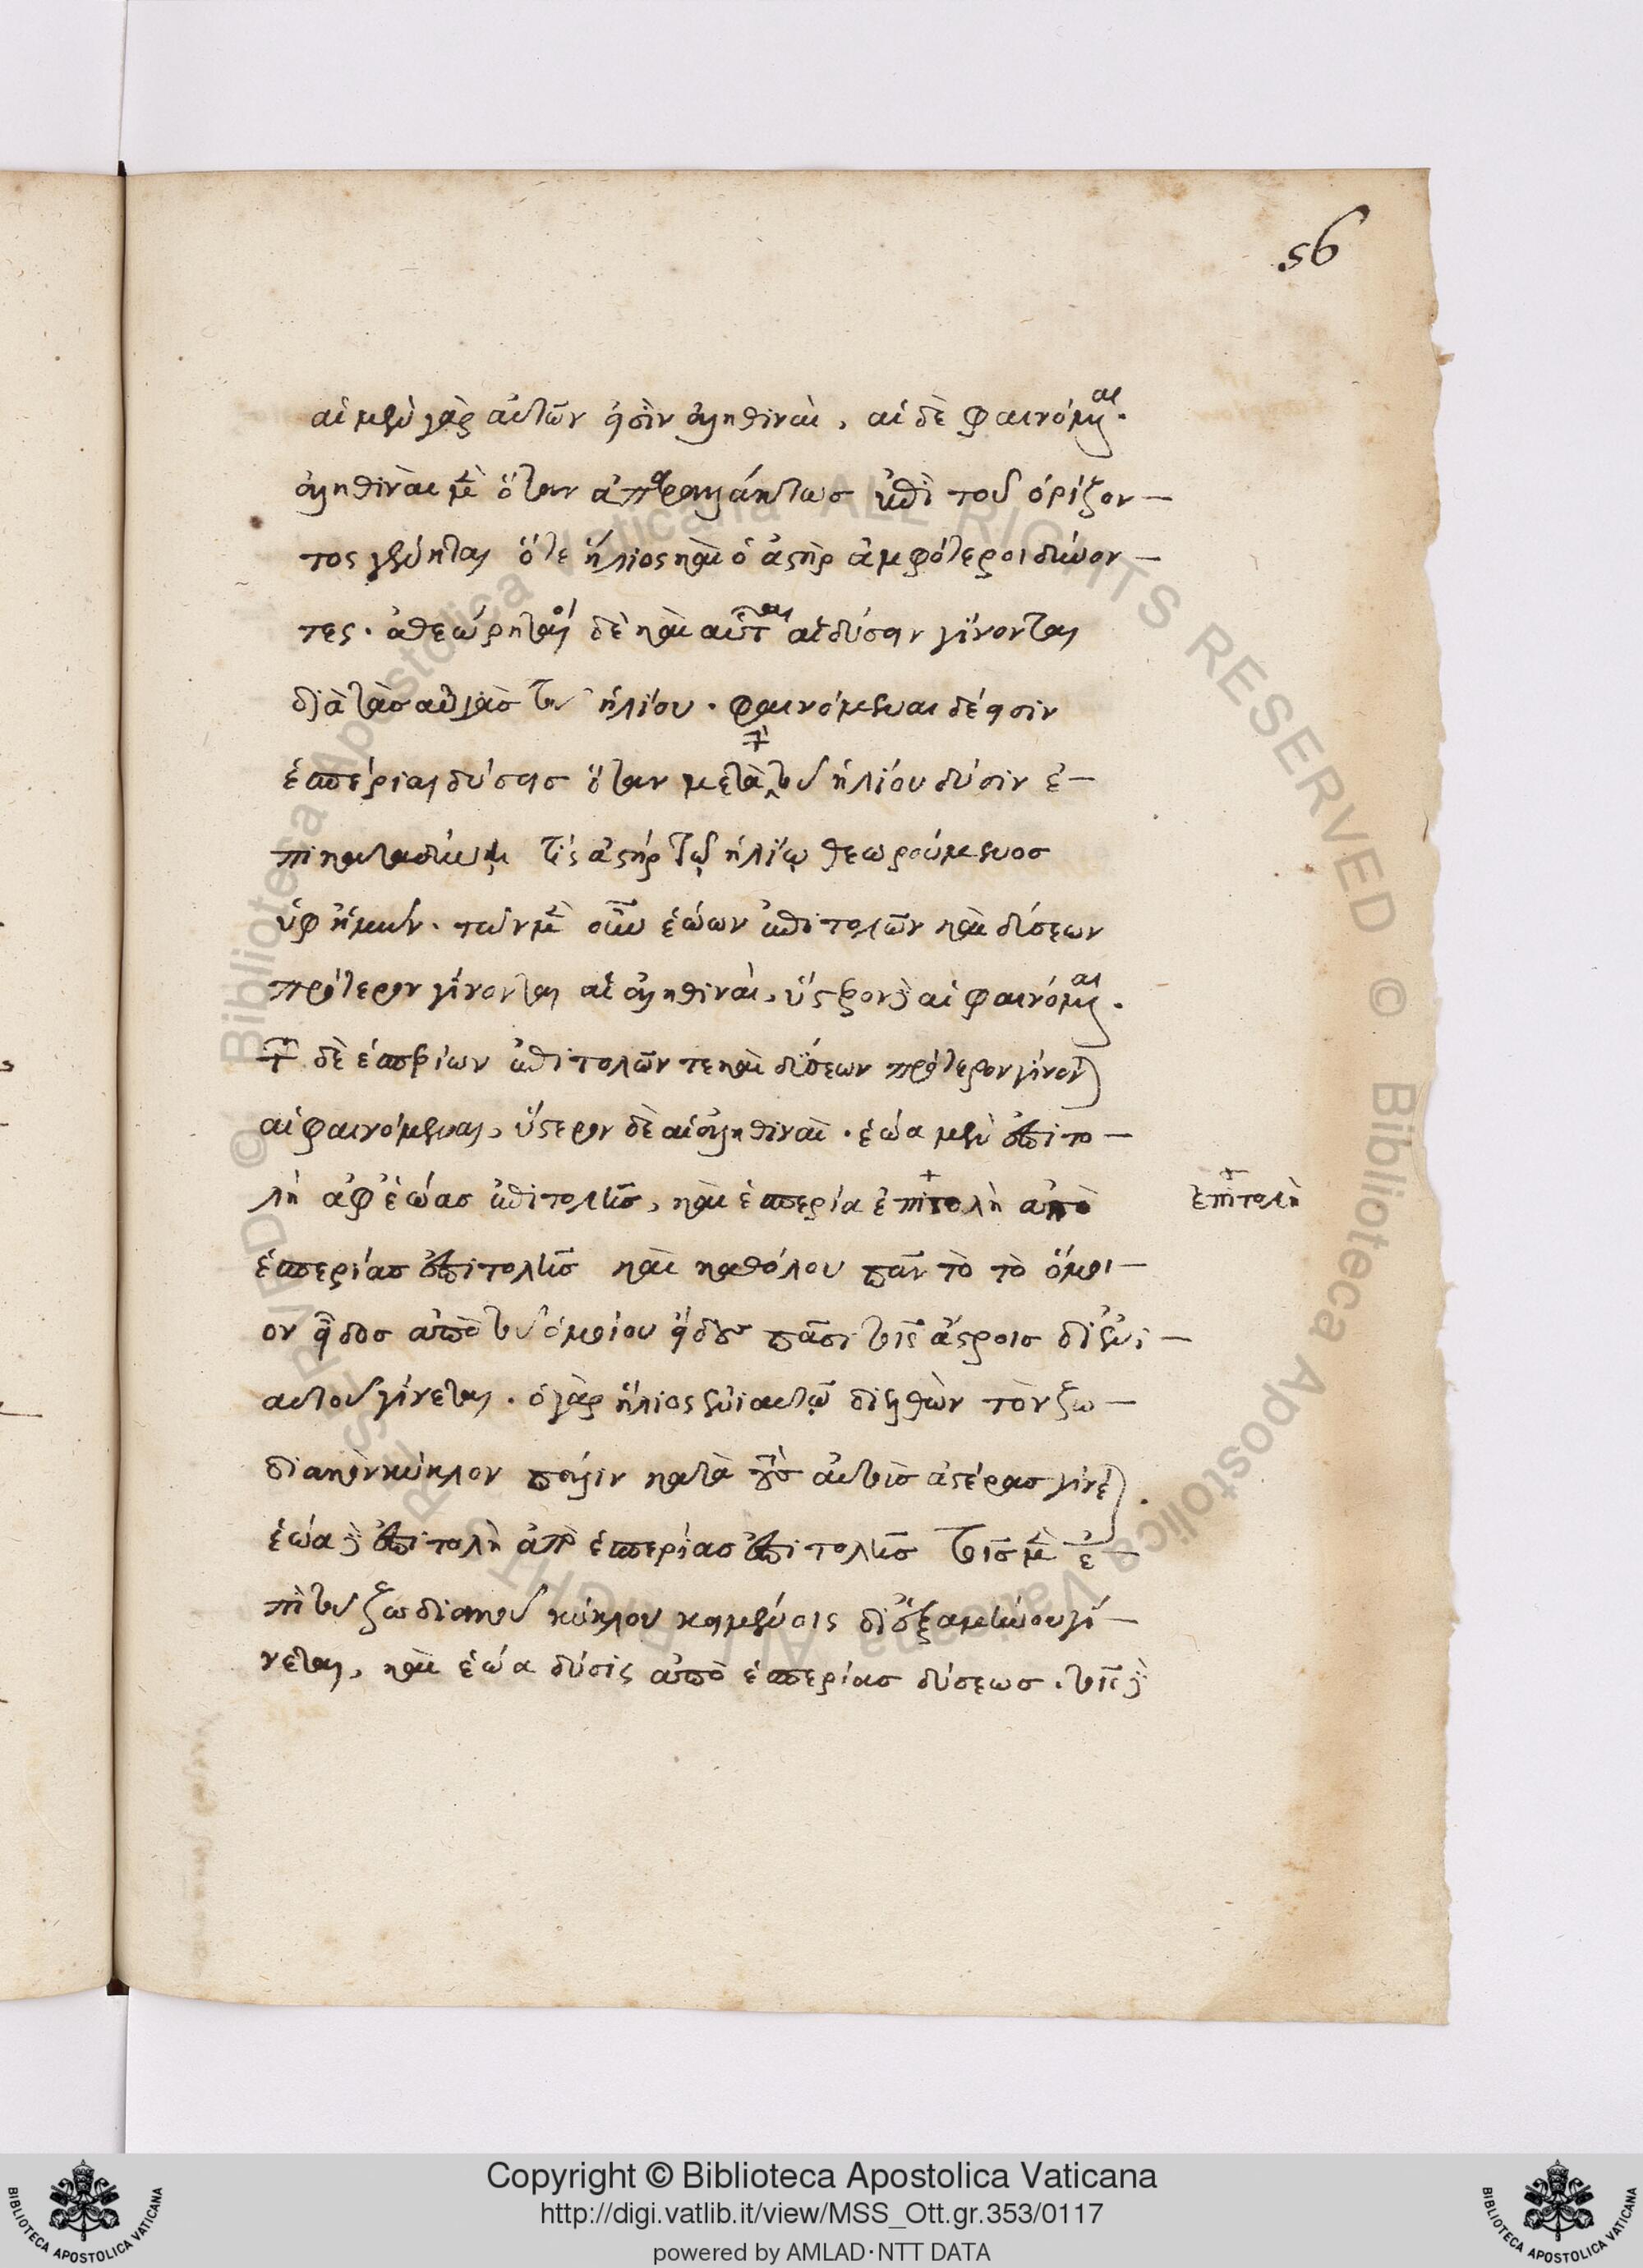 56
αἱ μὲν γὰρ αὐτῶν εἰσὶν ἀληθιναὶ, αἱ δὲ φαινόμεναι.
ἀληθιναὶ μὲν ὅταν ἀπαραλλάκτως ἐπὶ τοῦ ὁρίζον-
τος γένηται ὅτε ἥλιος καὶ ὁ ἀστὴρ ἀμφότεροι δύνον-
τες. ἀθεώρητοι δὲ καὶ αὗται αἱ δύσεις γίνονται
διὰ τὰς αὐγὰς τοῦ ἡλίου. φαινόμεναι δέ εἰσιν
ἑσπέριαι δύσεις ὅταν μετὰ τὴν τοῦ ἡλίου δύσιν ἐ-
πικαταδύων τις ἀστὴρ τῷ ἡλίῳ θεωρούμενος
ὑφ ἡμῶν. τῶν μὲν οὖν ἑῴων ἐπιτολῶν καὶ δύσεων
πρότερον γίνονται αἱ ἀληθιναὶ, ὕστερον δὲ αἱ φαινόμεναι.
τῶν δὲ ἑσπερίων ἐπιτολῶν τε καὶ δύσεων πρότερον γίνονται
αἱ φαινόμεναι, ὕστερον δὲ αἱ ἀληθιναὶ. ἑῴα μὲν ἐπιτο-
λὴ ἀφ ἑῴας ἐπιτολῆς, καὶ ἑσπερία ἐπιτολὴ ἀπὸ
ἐπιτολὴ
ἑσπερίας ἐπιτολῆς καὶ καθόλου πᾶν τὸ τὸ ὅμοι-
ον εἶδος ἀπὸ τοῦ ὁμοίου εἴδους πᾶσι τοῖς ἄστροις δι ἐνι-
αυτοῦ γίνεται. ὁ γὰρ ἥλιος ἐνιαυτῷ διελθὼν τὸν ζω-
διακὸν κύκλον πάλιν κατὰ τοὺς αὐτοὺς ἀστέρας γίνεται.
ἑῴα δὲ ἐπιτολὴ ἀπὸ ἑσπερίας ἐπιτολῆς τοῖς μὲν ἐ-
πὶ τοῦ ζωδιακοῦ κύκλου κειμένοις δι ἑξαμήνου γί-
νεται, καὶ ἑῴα δύσις ἀπὸ ἑσπερίας δύσεως. τοῖς δὲ
Copyright © Biblioteca Apostolica Vaticana
http://digi.vatlib.it/view/MSS_Ott.gr.353/0117
powered by AMLAD·NTT DATA